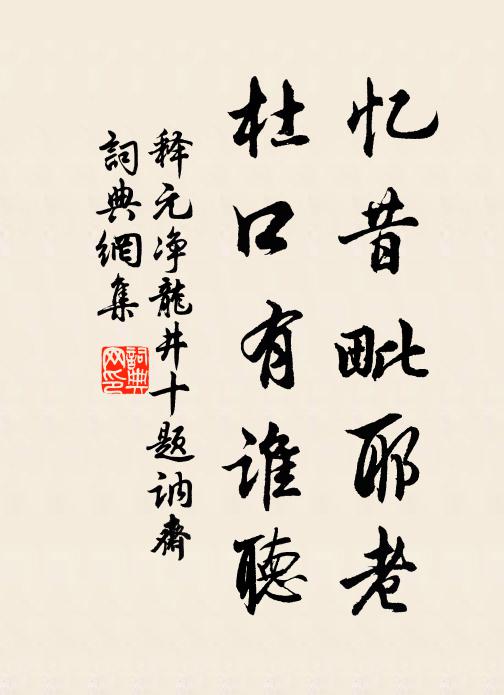 忆昔毗耶老
杜口有谁聽
释元净龍井十题讷齋
詞典網集
詞典网印